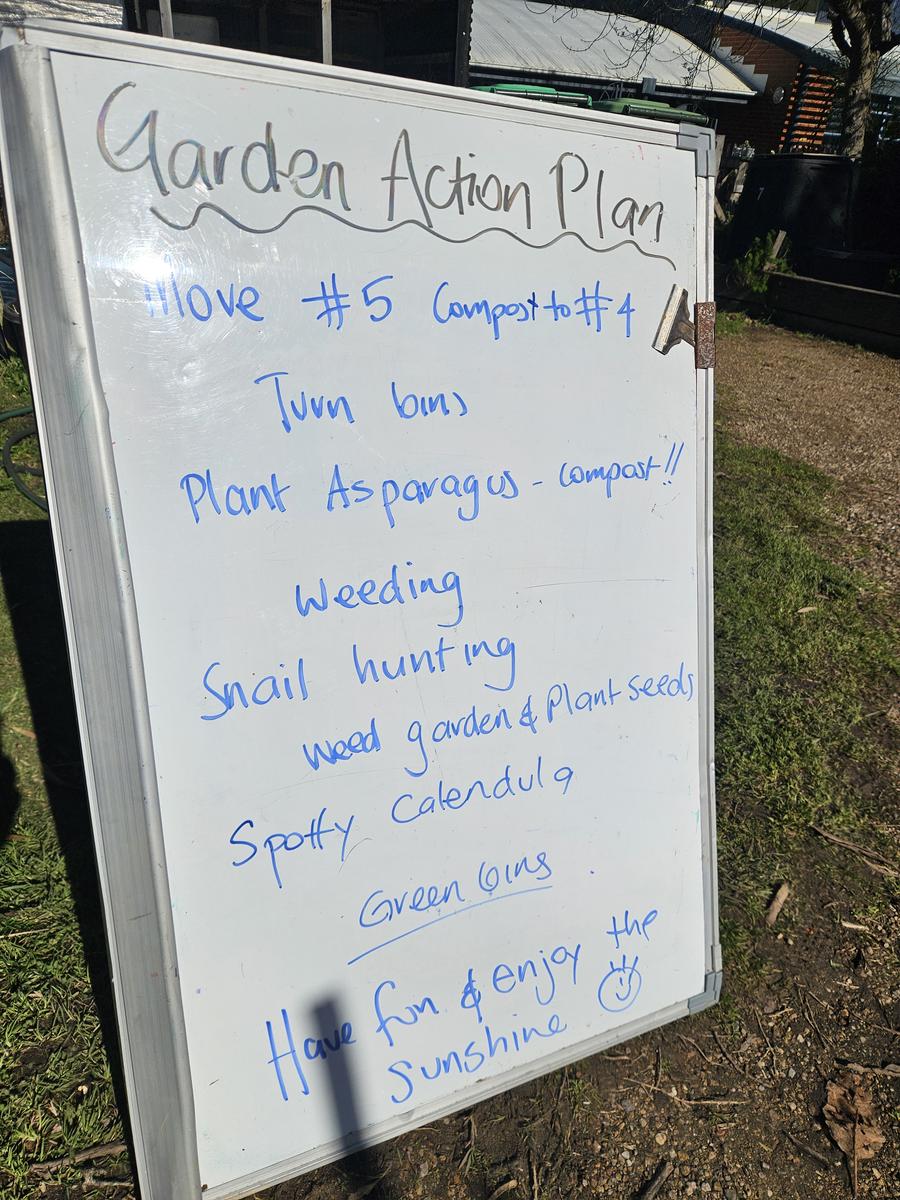 Garden Action Plan
Move #5 Compost to #4
Turn bins
Plant Asparagus - compost!!
Weeding
Snail hunting
Weed garden & Plant seeds
Spotty Calendula
Green bins
Have fun & enjoy the
sunshine